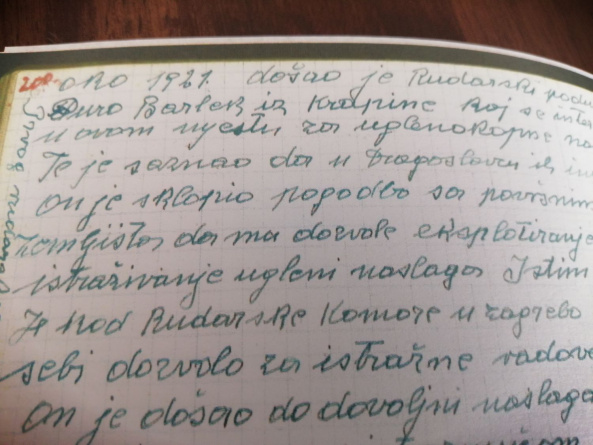 oko 1921. došao je Rudarski
Đuro Barlek iz Krapine koj se
u ovom mjestu za uglenokopne
Te je saznao da u Dragoslavcu
on je sklopio pogodbo sa površnim
zemljišta da mu dozvole eksplotiranje
istraživanje ugleni naslaga Istim
Je kod Rudarske Komore u zagrebo
sebi dozvolo za istražne radove
On je došao do dovoljni naslaga